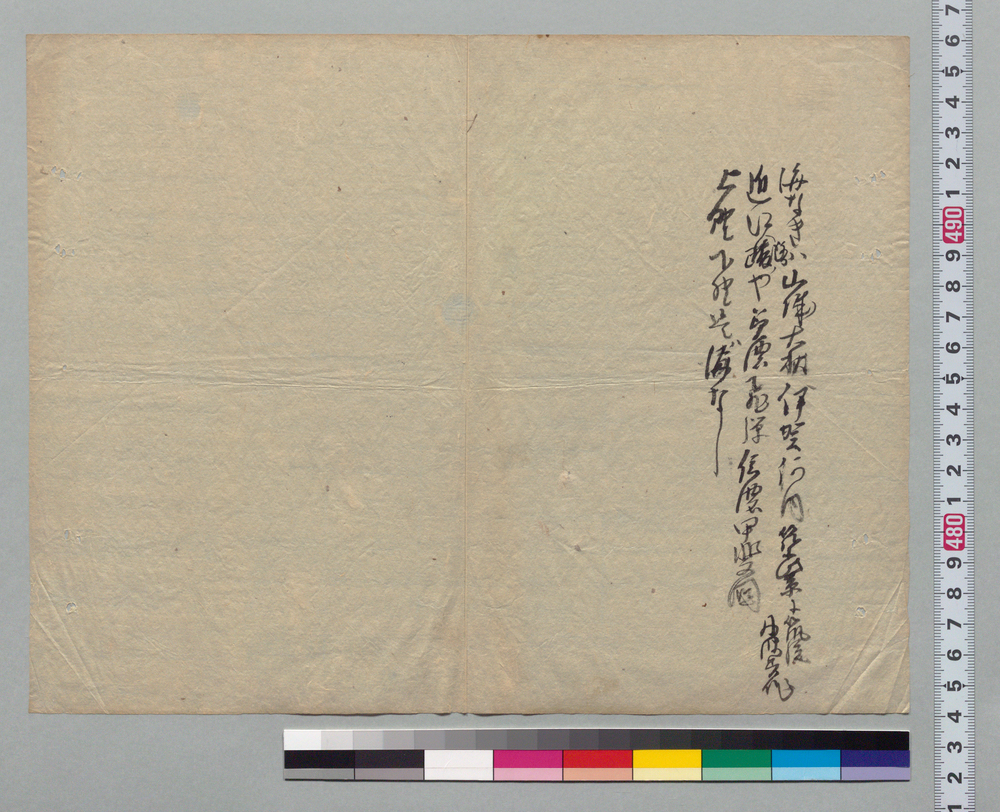 海なきハ山城大和伊賀河内
丹波美作
近江路や美濃飛騨信濃甲斐国
上野下野是そ海なし
7 6 5 4 3 2 1 490 9 8 7 6 5 4 3 2 1 480 9 8 7 6 5 4 3 2 1